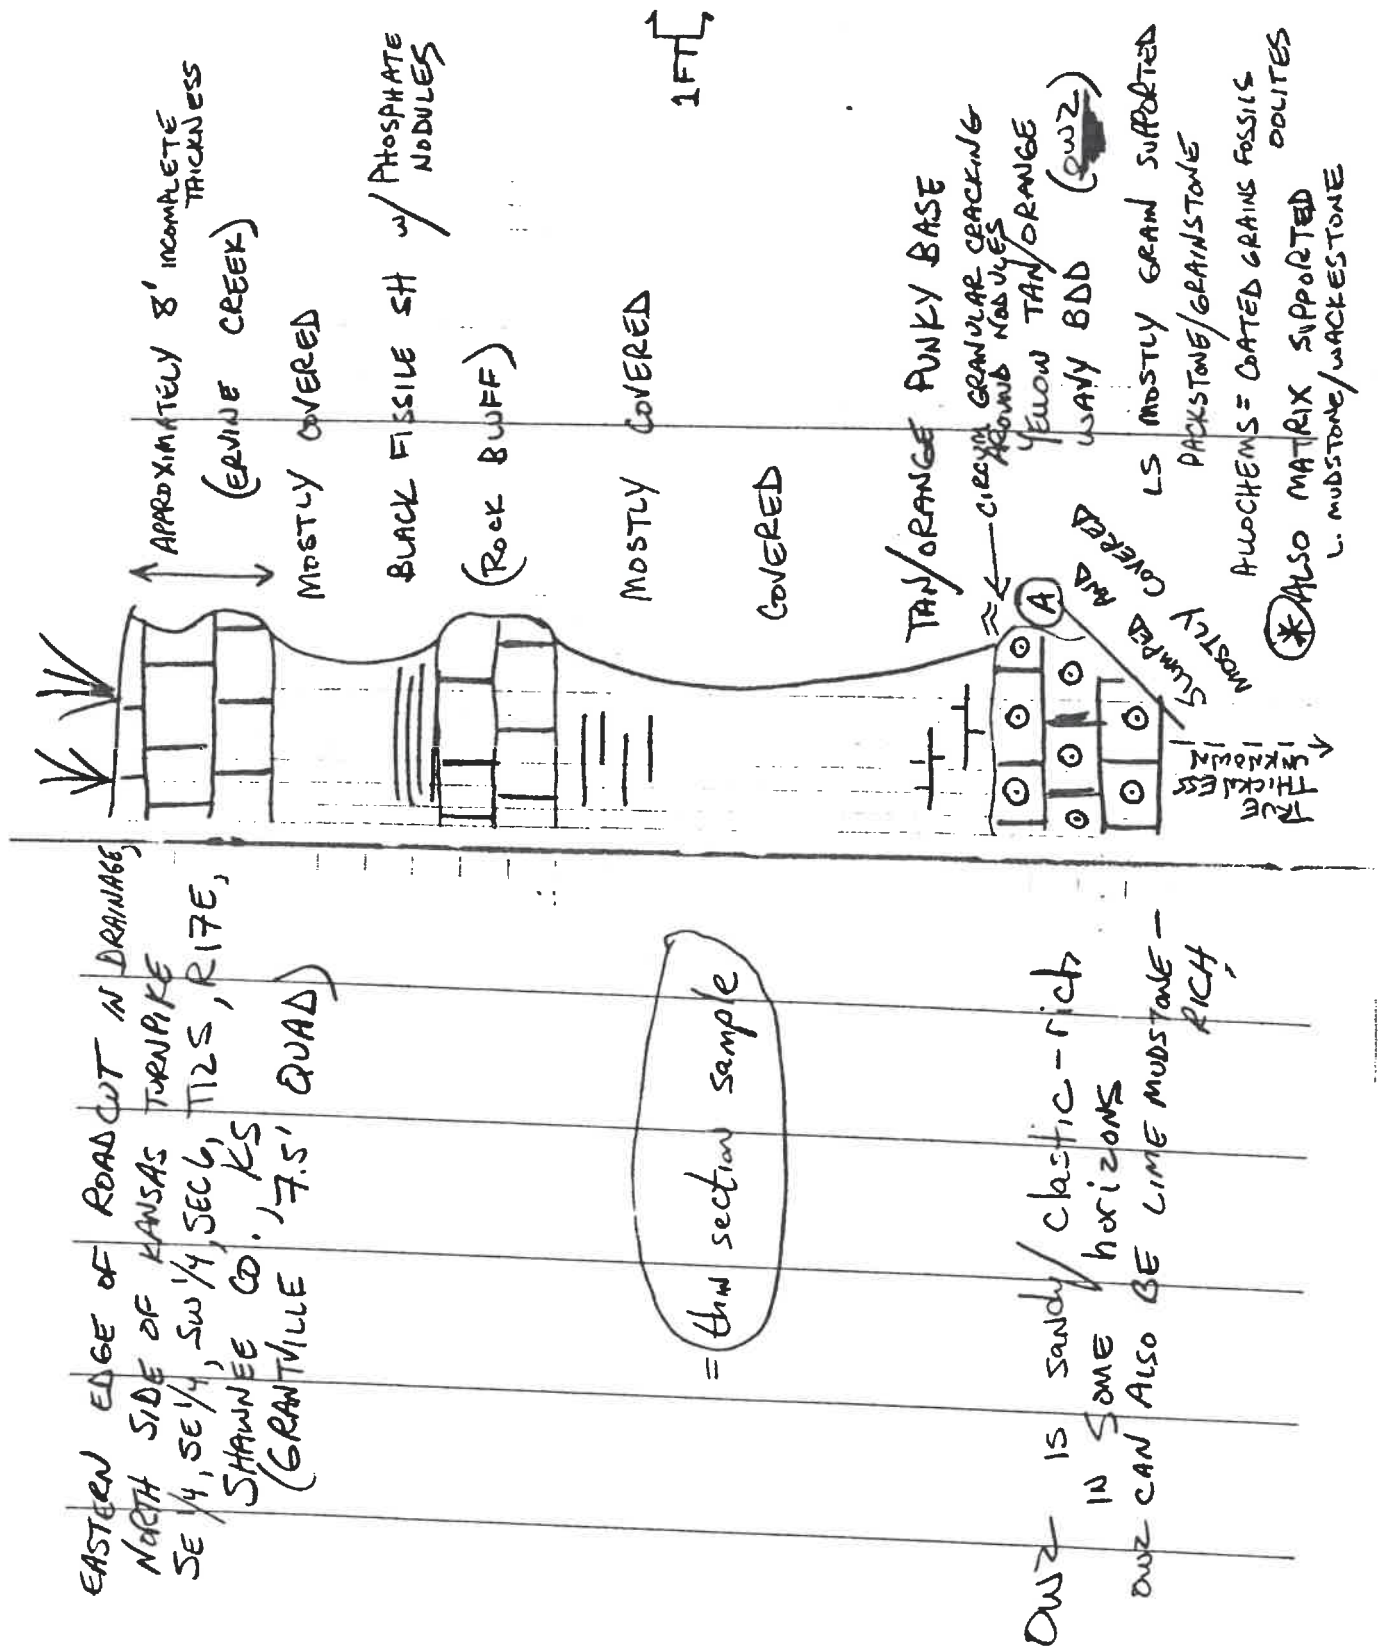 EASTERN EDGE OF ROADCUT IN DRAINAGE,
NORTH SIDE OF KANSAS TURNPIKE
SE 1/4, SE 1/4, SW 1/4, SEC 6, T12S, R17E,
SHAWNEE CO., KS
(GRANTVILLE 7.5' QUAD)
= thin section sample
OWZ IS sandy/clastic-rich
IN SOME horizons
OWZ CAN ALSO BE LIME MUDSTONE-
RICH,
APPROXIMATELY 8' INCOMPLETE
THICKNESS
(ERVINE CREEK)
MOSTLY COVERED
BLACK FISSILE SH w/PHOSPHATE
NODULES
(ROCK BLUFF)
1FT
MOSTLY COVERED
COVERED
TAN/ORANGE PUNKY BASE
CIRCUM GRANULAR CRACKING
AROUND NODULES
YELLOW TAN/ORANGE
WAVY BDD (OWZ)
A
SLUMPED AND
MOSTLY COVERED
LS MOSTLY GRAIN SUPPORTED
PACKSTONE/GRAINSTONE
ALLOCHEMS = COATED GRAINS FOSSILS
OOLITES
* ALSO MATRIX SUPPORTED
L. MUDSTONE/WACKESTONE
TRUE
THICKNESS
UNKNOWN